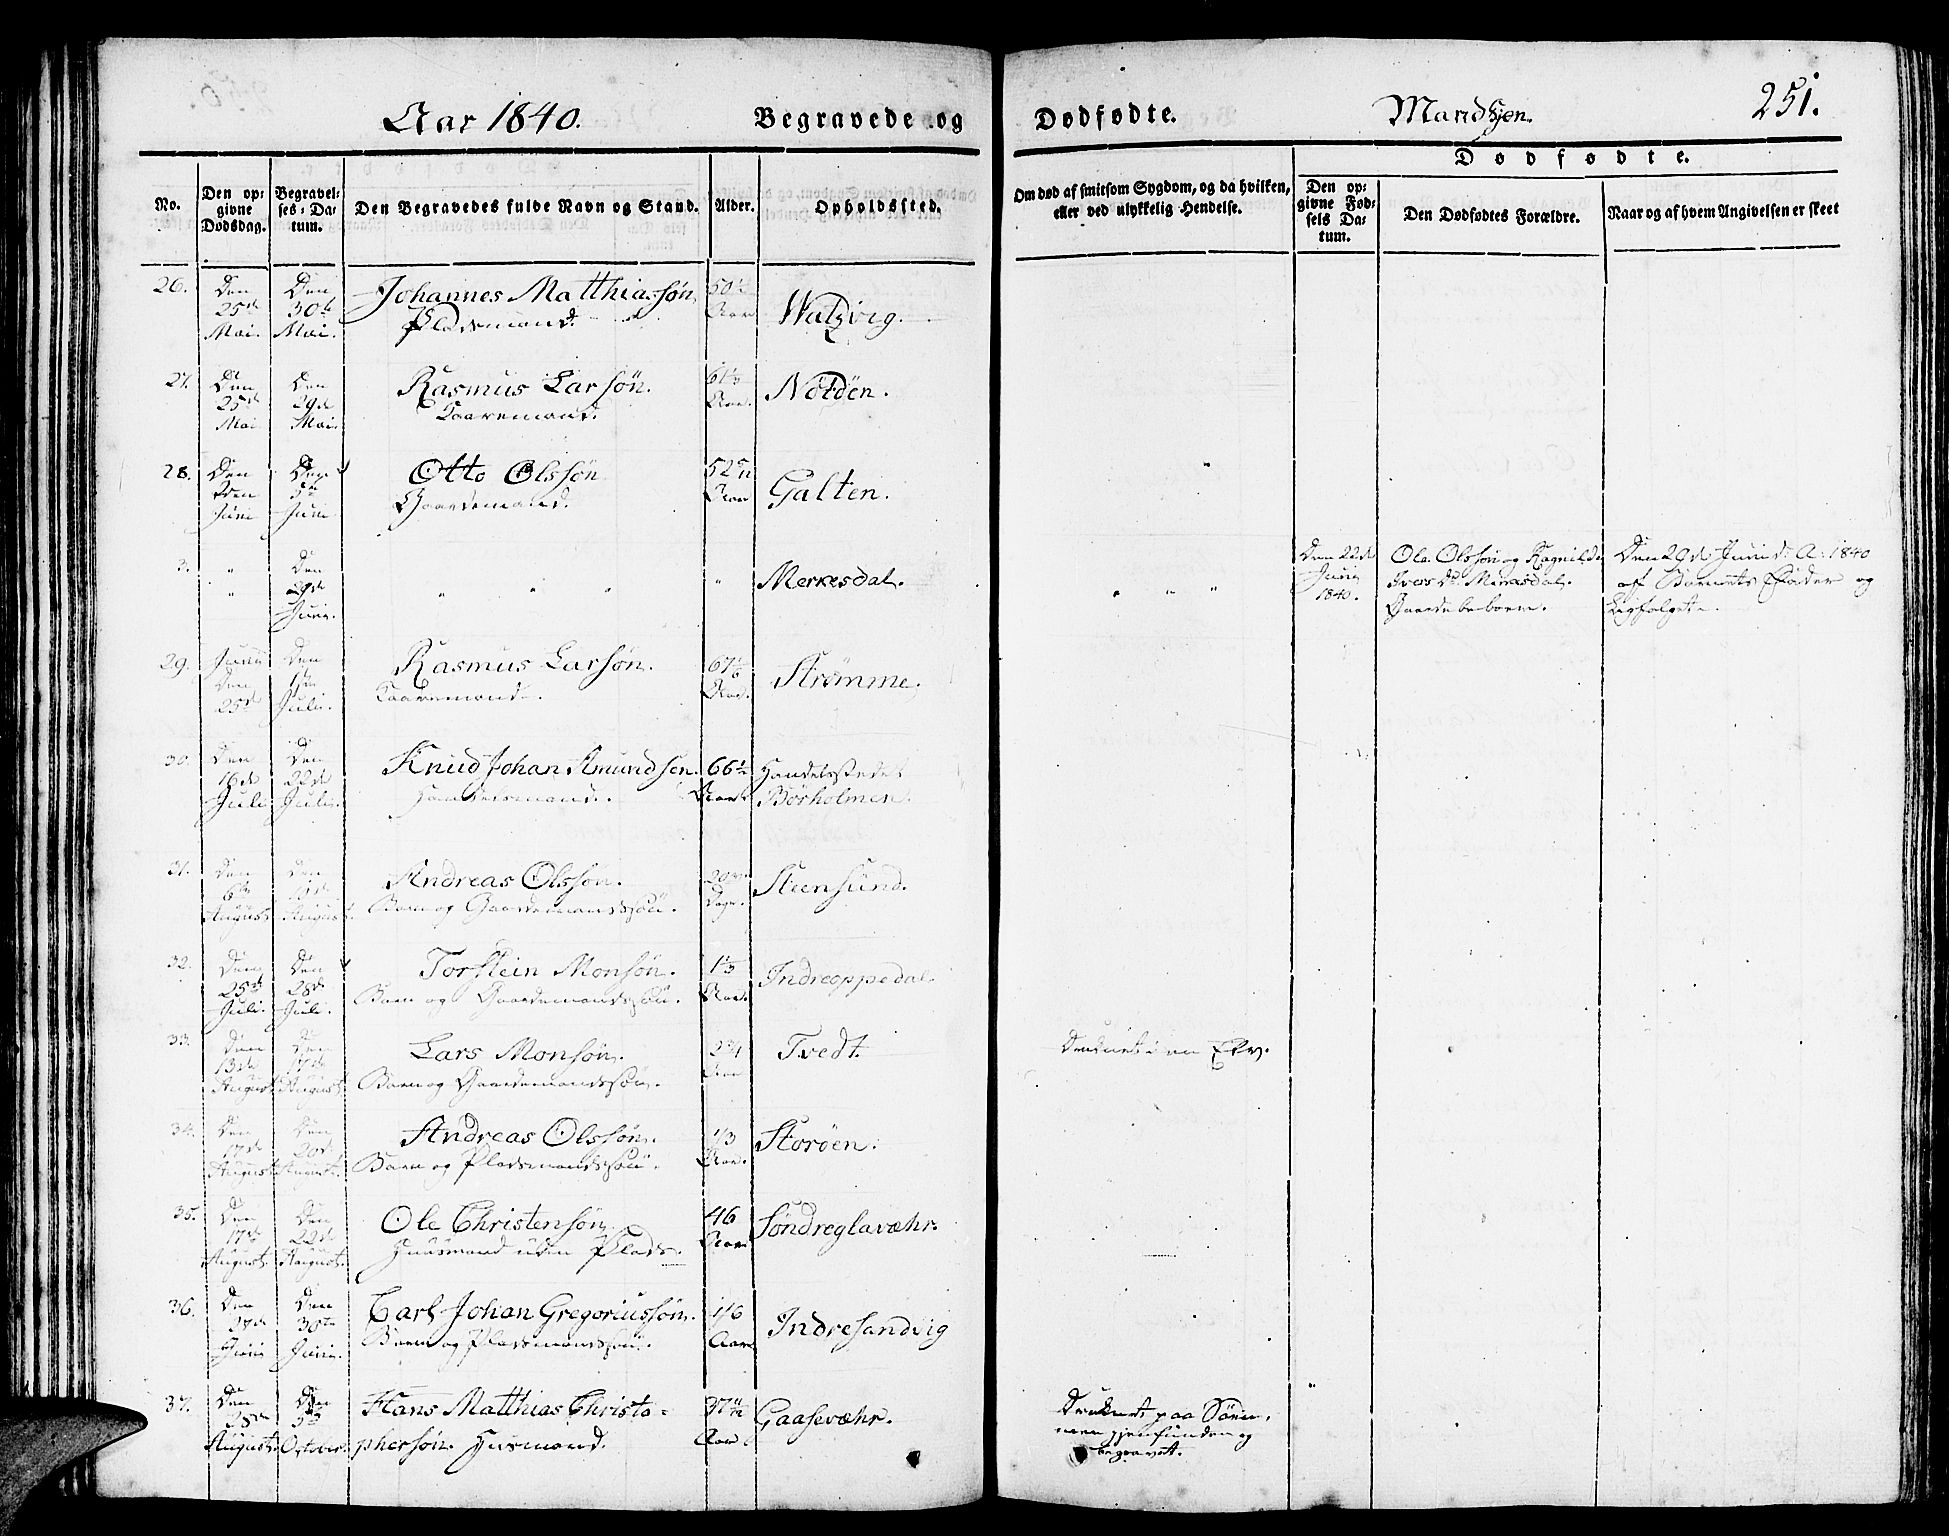 Aar 1840. Begravede og Dødfødte. Mandkjøn. 251.
Dødfødte.
No.
Den opgivne Dødsdag.
Begravelses-Datum.
Den Begravedes fulde Navn og Stand.
Alder.
Opholdssted.
Om død af smitsom Sygdom, og da hvilken, eller ved ulykkelig Hendelse.
Den opgivne Fødsels Datum.
Den Dødfødtes Forældre.
Naar og af hvem Angivelsen er skeet
26. Den Den Johannes Matthiassøn 50½
25de 30te Pladsmand. Aar Walzvig.
Mai. Mai.
27. Den Den Rasmus Larsøn. 61⅓ Nötöen.
25de 29de Kaaremand. Aar.
Mai Mai.
28. Den Den Otto Olssøn 52 5/12
5te Gaardemand. Aar Galten.
Juni Juni
3. " Den " " " " Merkesdal. " " " Den 22de Ole Olssøn og Ragnilde Den 29de Juni d. A. 1840
" 29de Juni Ivers Dr. Gaardbeboere. af Barnets Fader og
Juni. 1840. Ligfølget.
29. Juni Den Rasmus Larsøn. 67 1/6 Strømme.
Den 1ste Kaaremand. Aar.
25de Juli.
30. Den Den Knud Johan Amundsen. 66½ Handelsstedet
16de 22de Handelsmand. Aar. Børholmen.
Juli Juli.
31. Den Den Andreas Olssøn. Steensund.
6te 10de Barn og Gaardemandssøn. Dage.
August August.
32. Den Den Torstein Monsøn. 1⅓ Indreoppedal.
25de 28de Barn og Gaardemandssøn. Aar.
Juli. Juli.
33. Den Den Lars Monsøn. Tvedt. Druknet i en Elv.
13de 17de Barn og Gaardemandssøn. Aar
August August.
34. Den Den Andreas Olssøn. 1/3 Storöen.
17de 20de Barn og Pladsmandssøn. Aar.
August August.
35. Den Den Ole Christensøn. 46 Søndreglavæhr.
17de 22de Huusmand uden Plads. Aar
August. August.
36. Den Den Carl Johan Gregoriussøn. 1/6 Indresandvig
28de 30te Barn og Pladsmandssøn. Aar
Juni Juni.
37. Den Den Hans Matthias Christo= 37 11/12 Gaasevæhr. Druknet paa Søen,
28de men gjenfunden og
August. October. phersøn. Husmand. Aar begravet.